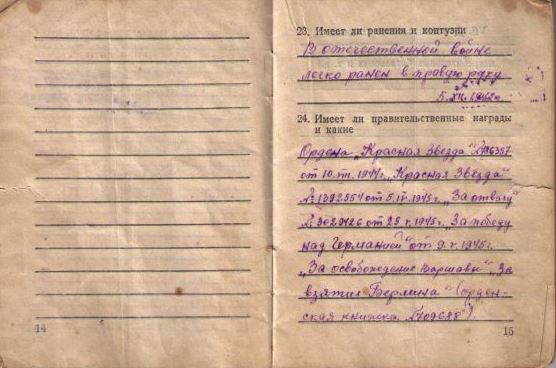 23. Имеет ли ранения и контузии
В отечественной войне
легко ранен в правую руку
24. Имеет ли правительственные награды
и какие
Ордена „Красная Звезда"
от 10. 1944г. „Красная Звезда"
№1392554 от 5.IV.1945г. „За отвагу"
№3020426 от 25.V.1945г. „За победу
над Германией" от 9.V.1945г.
„За освобождение Варшавы" „За
взятие Берлина" (орден-
ская книжка №709688).
14
15